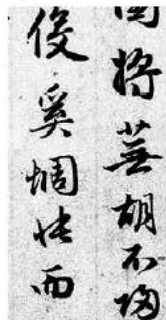 園將蕪胡不歸
役奚惆悵而